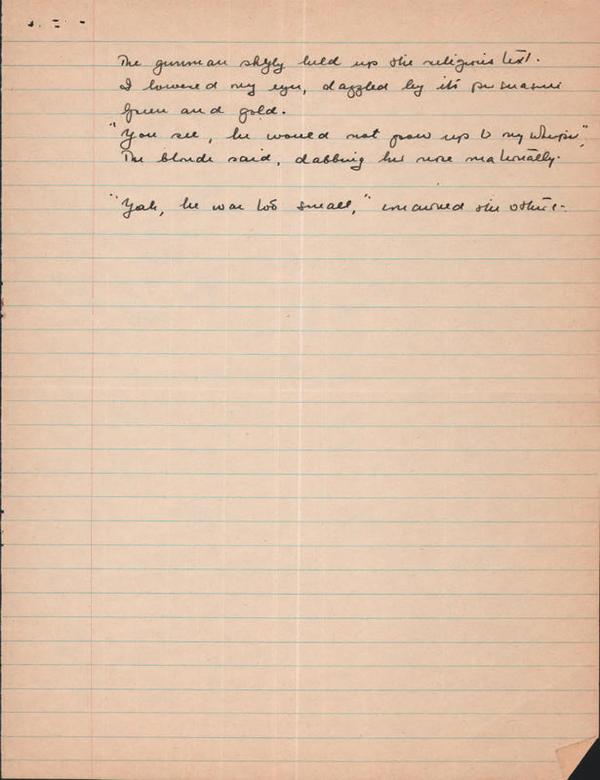 The gunman shyly held up the religious text.
I lowered my eyes, dazzled by its
green and gold.
"You see, he would not grow up to my
The blonde said, dabbing her nose maternally.
"Yah, he was too small," the other.